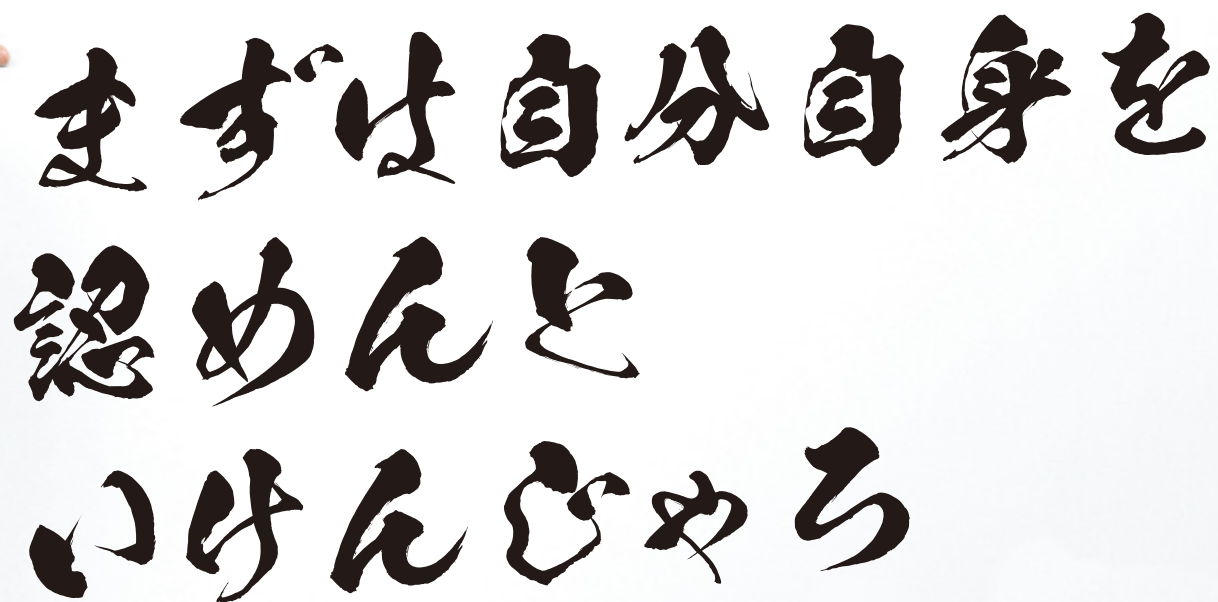 まずは自分自身を
認めんと
いけんじゃろ